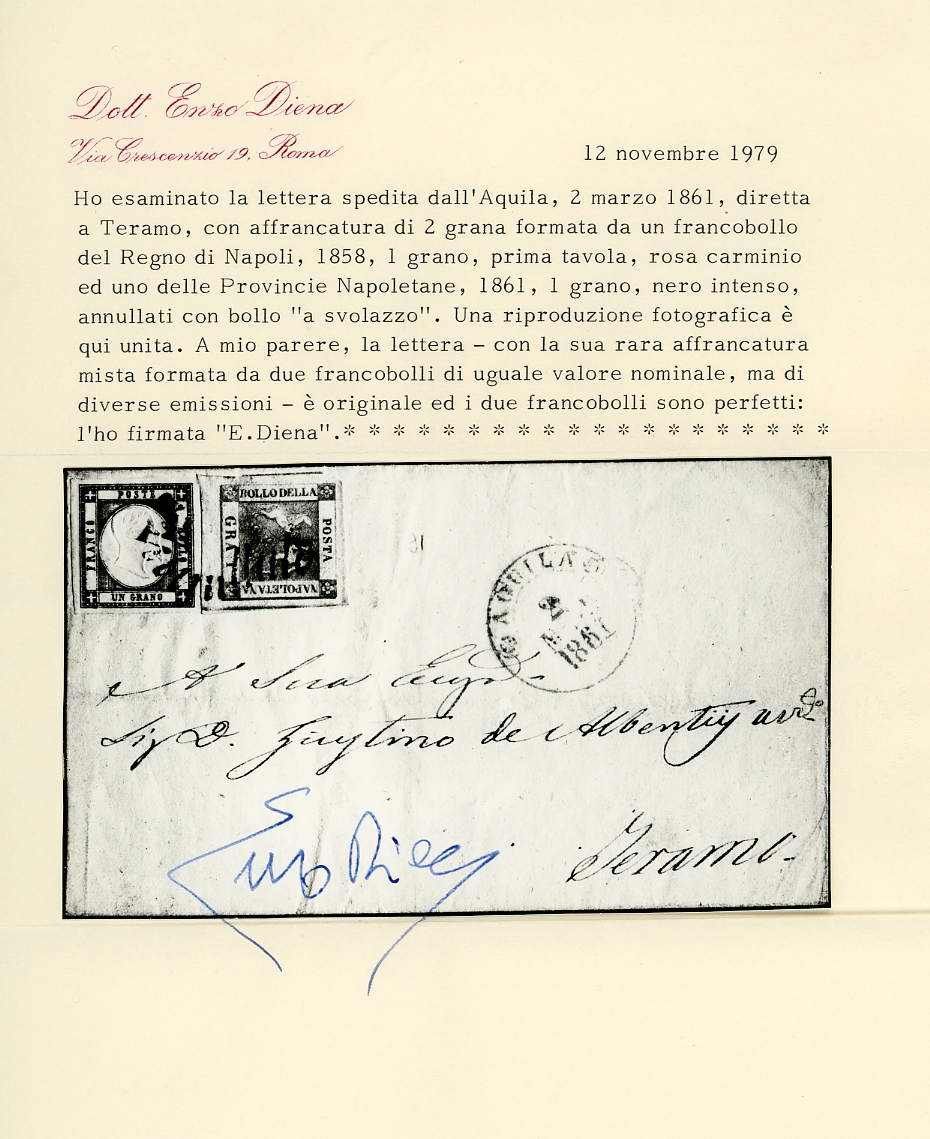 Dott. Enzo Diena
Via Crescenzio 19, Roma
12 novembre 1979
Ho esaminato la lettera spedita dall'Aquila, 2 marzo 1861, diretta
a Teramo, con affrancatura di 2 grana formata da un francobollo
del Regno di Napoli, 1858, 1 grano, prima tavola, rosa carminio
ed uno delle Provincie Napoletane, 1861, 1 grano, nero intenso,
annullati con bollo "a svolazzo". Una riproduzione fotografica è
qui unita. A mio parere, la lettera - con la sua rara affrancatura
mista formata da due francobolli di uguale valore nominale, ma di
diverse emissioni - è originale ed i due francobolli sono perfetti:
l'ho firmata "E.Diena".* * * * * * * * * * * * * * * * * * * *
POSTE
FRANCO
BOLLO
UN GRANO
BOLLO DELLA
POSTA
NAPOLETANA
AQUILA
2
1861
A Sua
Sig D. Giustino de
Teramo
Enzo Diena